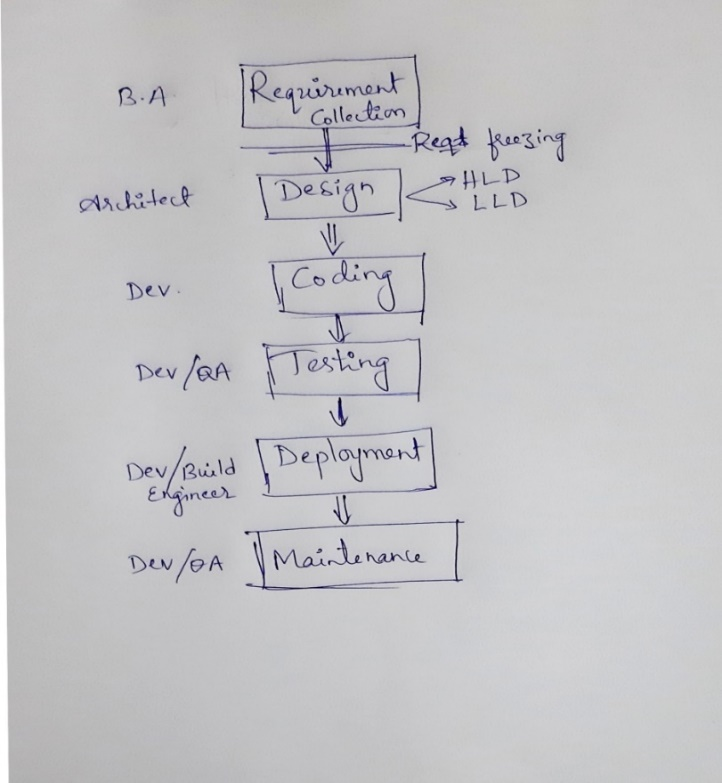 B.A
Requirement
Collection
Reqt freezing
Architect
Design
HLD
LLD
Dev.
Coding
Dev/QA
Testing
Dev/Build
Engineer
Deployment
Dev/QA
Maintenance